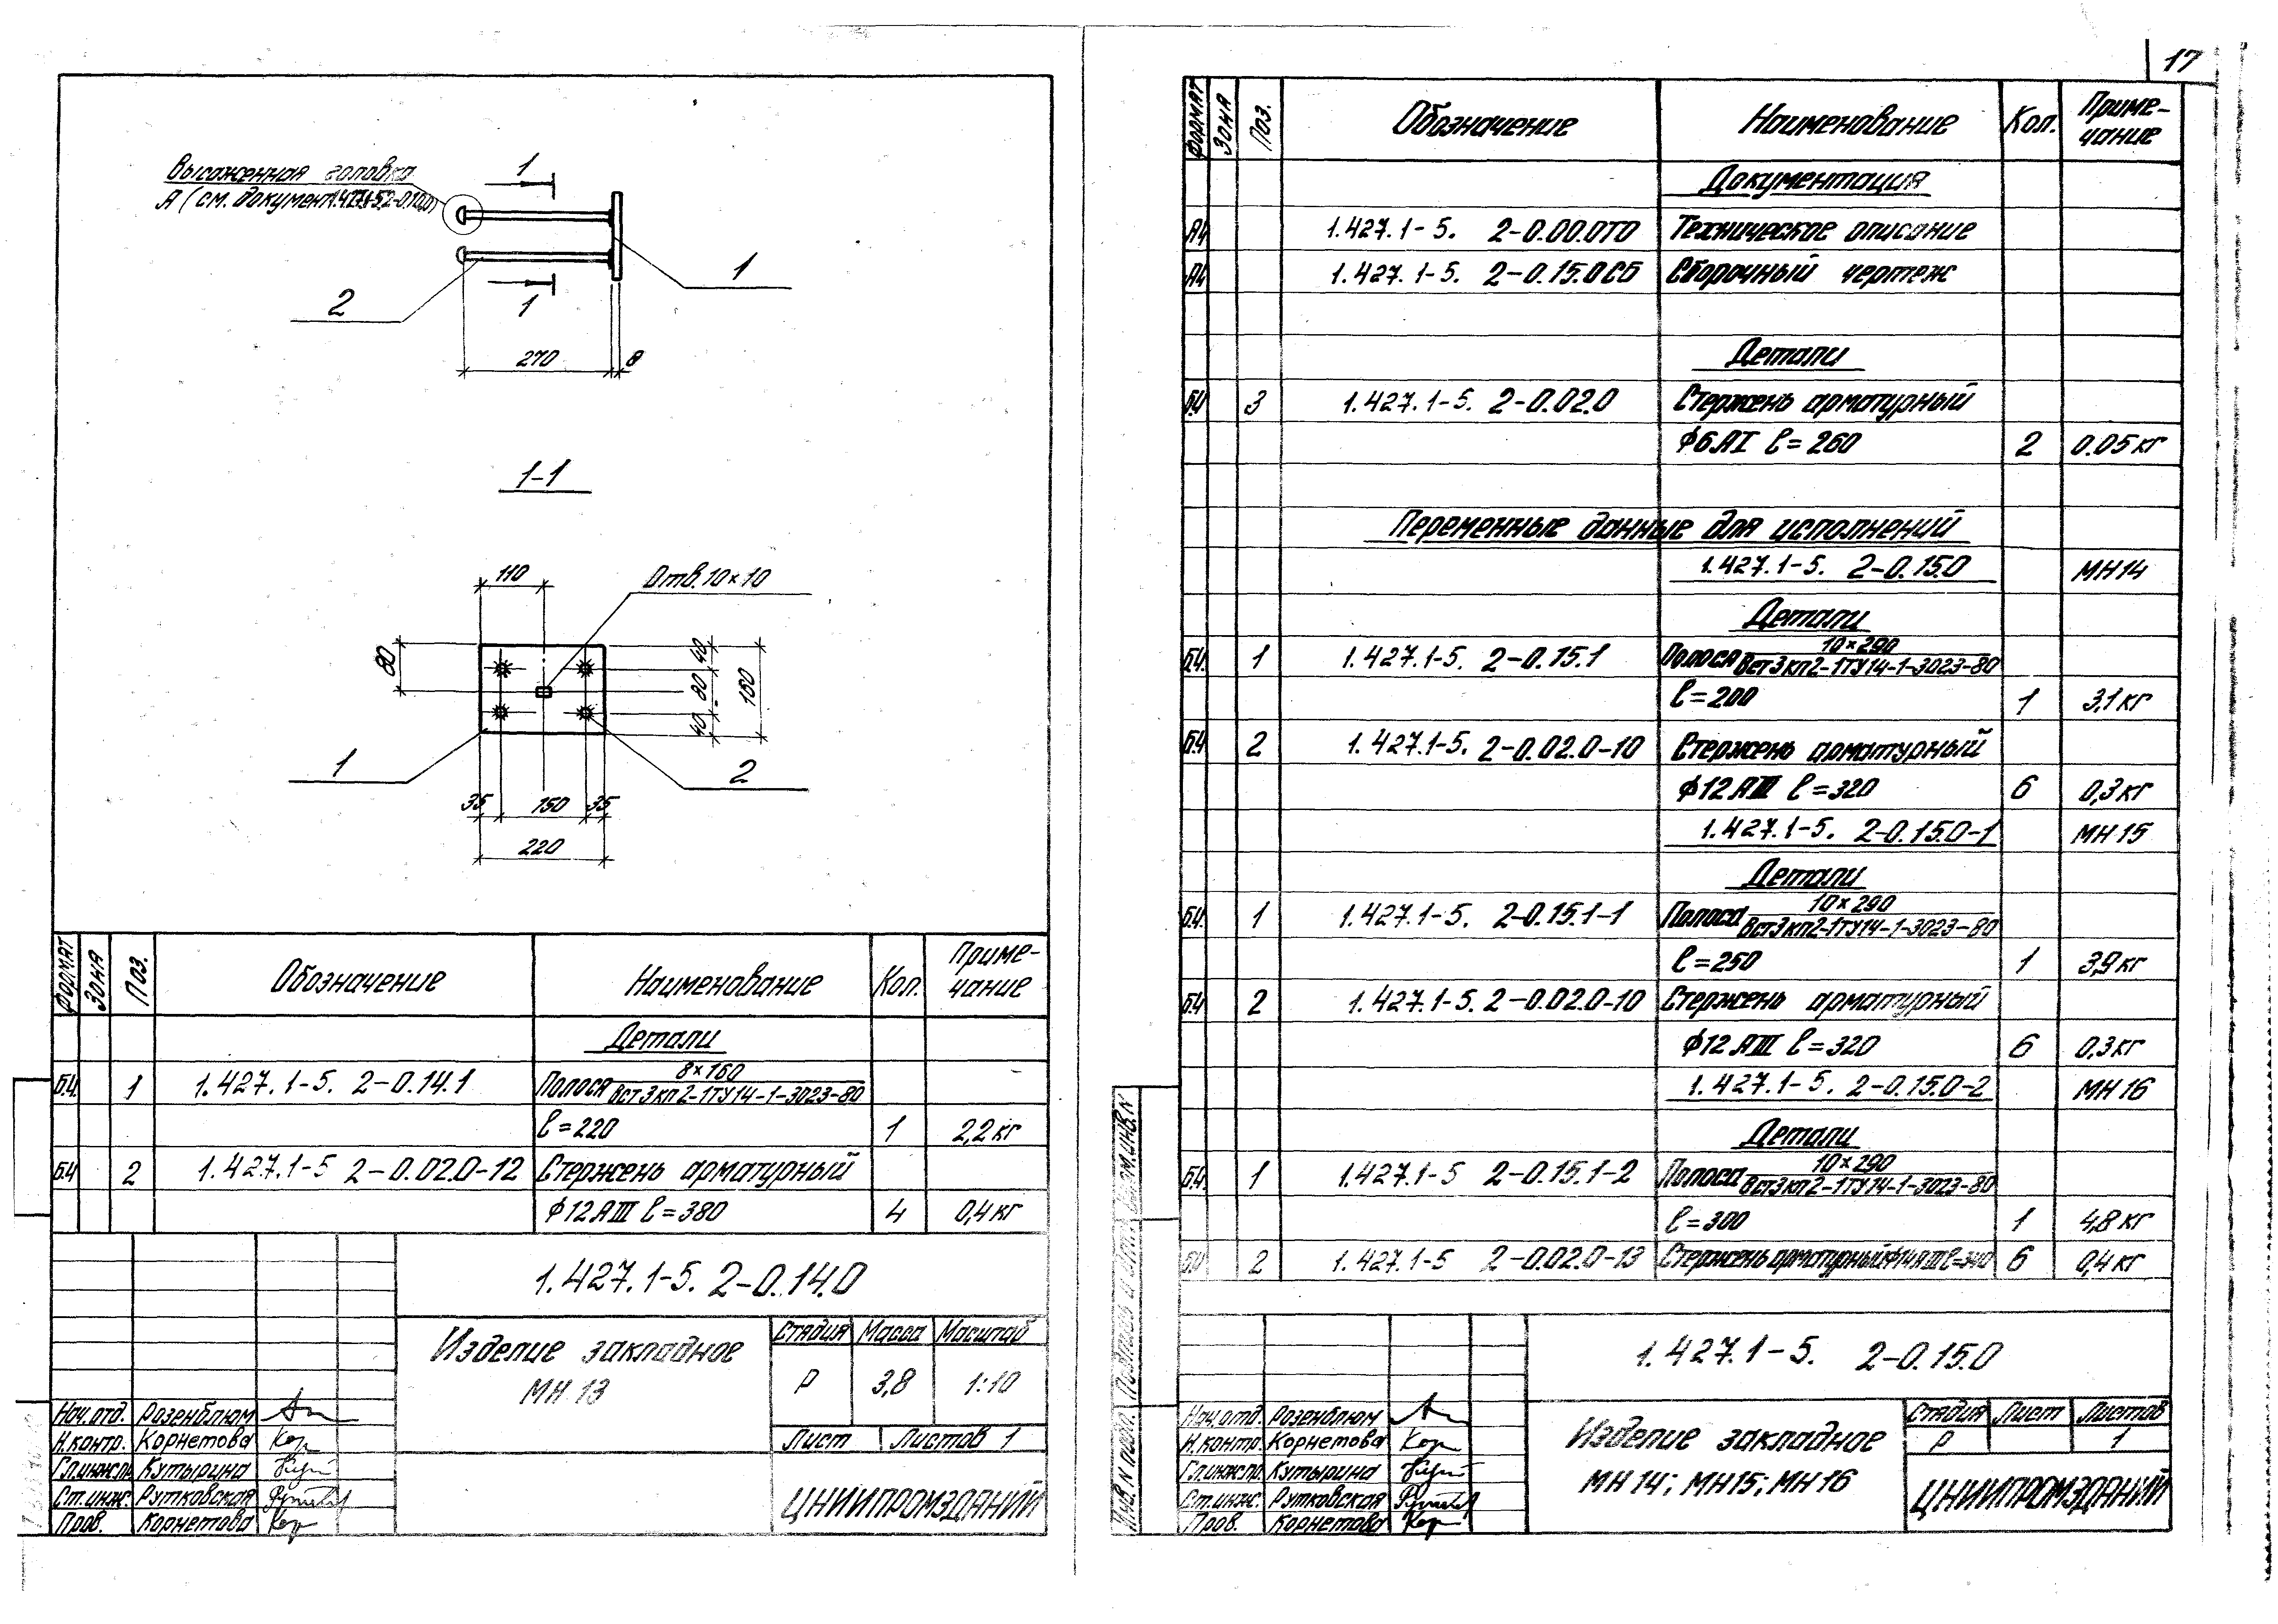 17
Высаженная головка
А (см. документ 1.427.1-5.2-0.10.0)
1
1
1
2
270
8
1-1
110
Отв. 10×10
80
40
80
40
160
1
2
35
150
35
220
Формат Зона Поз. Обозначение Наименование Кол. Приме-
чание
Детали
Б.4. 1 1.427.1-5. 2-0.14.1 Полоса 8×160
Вст3кп2-1ТУ14-1-3023-80
ℓ=220 1 2,2 кг
Б.4 2 1.427.1-5 2-0.02.0-12 Стержень арматурный
ф12АIII ℓ=380 4 0,4 кг
1.427.1-5. 2-0.14.0
Изделие закладное
МН 13
Стадия Масса Масштаб
Р 3,8 1:10
Лист Листов 1
ЦНИИПРОМЗДАНИЙ
Нач.отд. Розенблюм
Н.контр. Корнетова Кор
Гл.инж.пр. Кутырина
Ст.инж. Рутковская
Пров. Корнетова Кор
Формат Зона Поз. Обозначение Наименование Кол. Приме-
чание
Документация
А4 1.427.1-5. 2-0.00.0ТО Техническое описание
А4 1.427.1-5. 2-0.15.0СБ Сборочный чертеж
Детали
Б.4 3 1.427.1-5. 2-0.02.0 Стержень арматурный
ф6АI ℓ=260 2 0.05 кг
Переменные данные для исполнений
1.427.1-5. 2-0.15.0 МН14
Детали
Б.4. 1 1.427.1-5. 2-0.15.1 Полоса 10×290
Вст3кп2-1ТУ14-1-3023-80
ℓ=200 1 3,1 кг
Б.4 2 1.427.1-5. 2-0.02.0-10 Стержень арматурный
ф12АIII ℓ=320 6 0,3 кг
1.427.1-5. 2-0.15.0-1 МН15
Детали
Б.4. 1 1.427.1-5. 2-0.15.1-1 Полоса 10×290
Вст3кп2-1ТУ14-1-3023-80
ℓ=250 1 3,9 кг
Б.4 2 1.427.1-5. 2-0.02.0-10 Стержень арматурный
ф12АIII ℓ=320 6 0,3 кг
1.427.1-5. 2-0.15.0-2 МН16
Детали
Б.4. 1 1.427.1-5 2-0.15.1-2 Полоса 10×290
Вст3кп2-1ТУ14-1-3023-80
ℓ=300 1 4,8 кг
Б.4 2 1.427.1-5 2-0.02.0-13 Стержень арматурный ф14АIII ℓ=340 6 0,4 кг
1.427.1-5. 2-0.15.0
Изделие закладное
МН14; МН15; МН16
Стадия Лист Листов
Р 1
ЦНИИПРОМЗДАНИЙ
Нач.отд. Розенблюм
Н.контр. Корнетова Кор
Гл.инж.пр. Кутырина
Ст.инж. Рутковская
Пров. Корнетова Кор
Инв.N подл. Подпись и дата Взам.инв.N